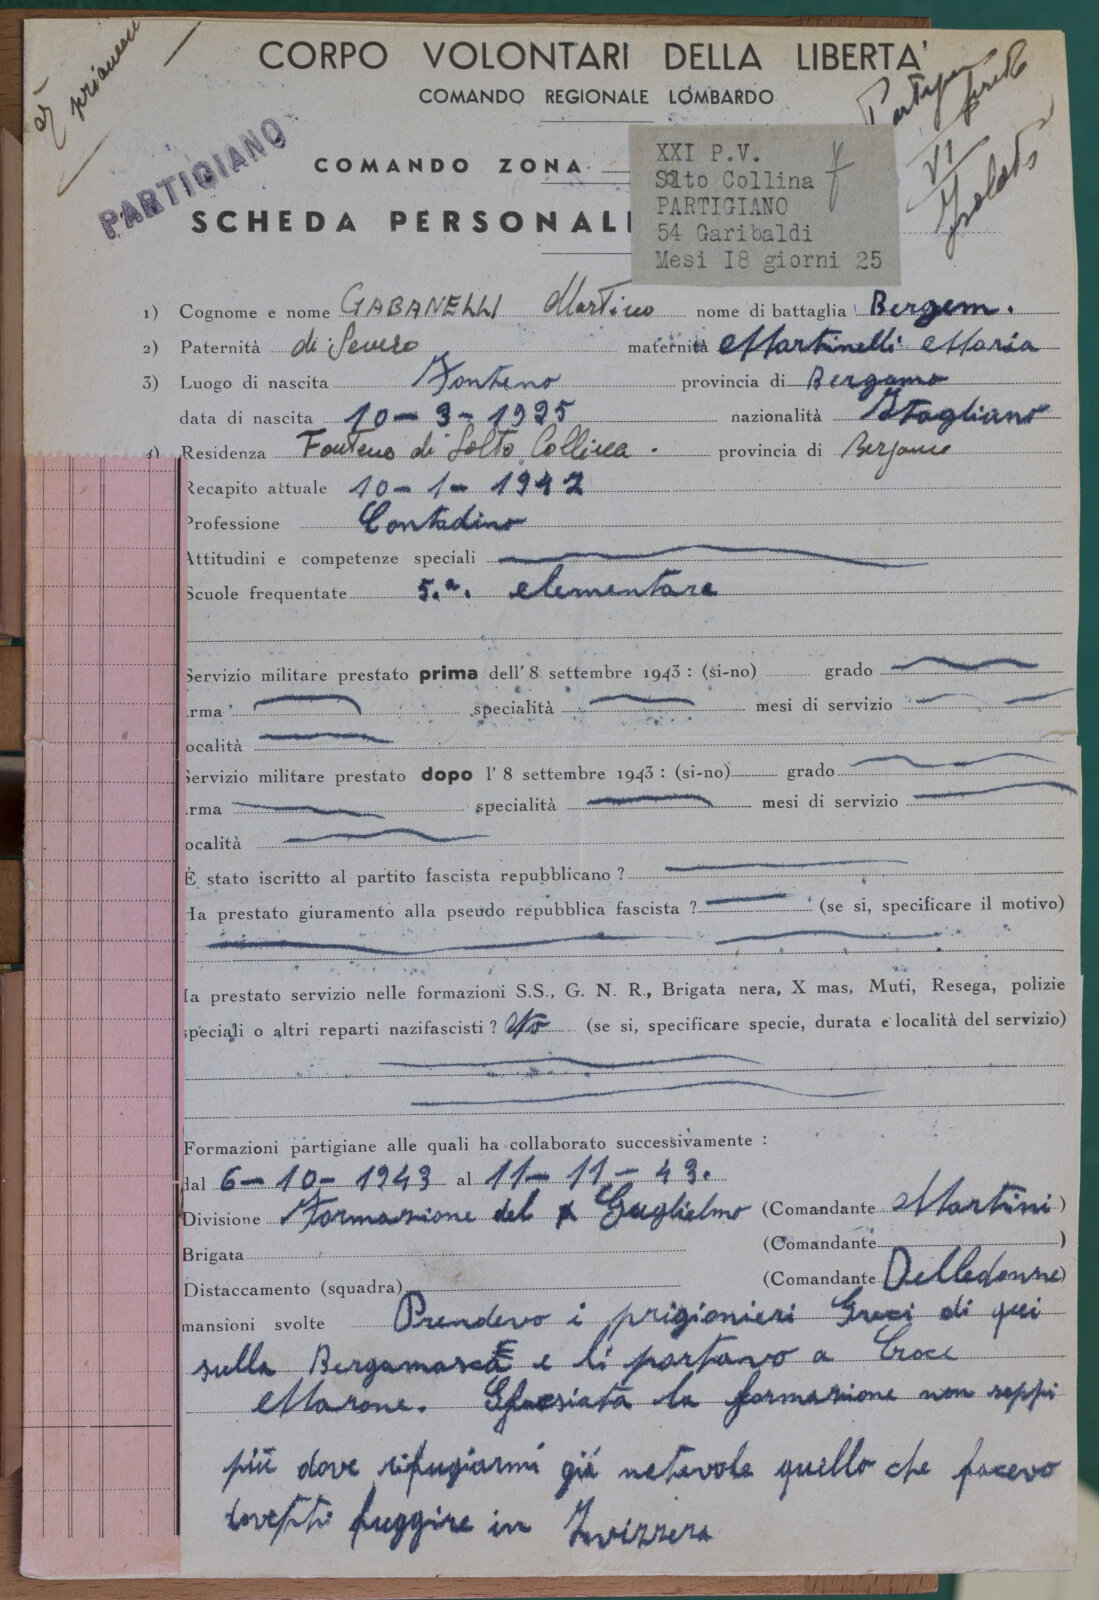 CORPO VOLONTARI DELLA LIBERTA'
COMANDO REGIONALE LOMBARDO
PARTIGIANO
COMANDO ZONA
SCHEDA PERSONAL
XXI P.V.
Sòlto Collina
PARTIGIANO
54 Garibaldi
Mesi I8 giorni 25
VI
Isolato
1) Cognome e nome GABANELLI Martino nome di battaglia Bergem.
2) Paternità di Severo maternità Martinelli Maria
3) Luogo di nascita Fonteno provincia di Bergamo
data di nascita 10-3-1925 nazionalità Itagliano
4) Residenza Fonteno di Solto Collina. provincia di Bergamo
Recapito attuale 10-1-1947
Professione Contadino
Attitudini e competenze speciali
Scuole frequentate 5.a. elementare
Servizio militare prestato prima dell' 8 settembre 1943: (si-no) grado
rma specialità mesi di servizio
ocalità
Servizio militare prestato dopo l' 8 settembre 1943: (si-no) grado
rma specialità mesi di servizio
ocalità
È stato iscritto al partito fascista repubblicano ?
Ha prestato giuramento alla pseudo repubblica fascista ? (se si, specificare il motivo)
Ha prestato servizio nelle formazioni S.S., G. N. R., Brigata nera, X mas, Muti, Resega, polizie
speciali o altri reparti nazifascisti ? No (se si, specificare specie, durata e località del servizio)
Formazioni partigiane alle quali ha collaborato successivamente :
dal 6-10-1943 al 11-11-43.
Divisione Formazione del Guglielmo (Comandante Martini)
Brigata (Comandante )
Distaccamento (squadra) (Comandante Delledonne)
mansioni svolte Prendevo i prigionieri Greci di qui
sulla Bergamasca e li portavo a Croce
Marone. la formazione non seppi
più dove rifugiarmi già quello che facevo
dovetti fuggire in Isvizzera